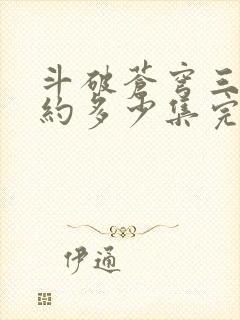 斗破蒼穹三
約多少集完
伊通